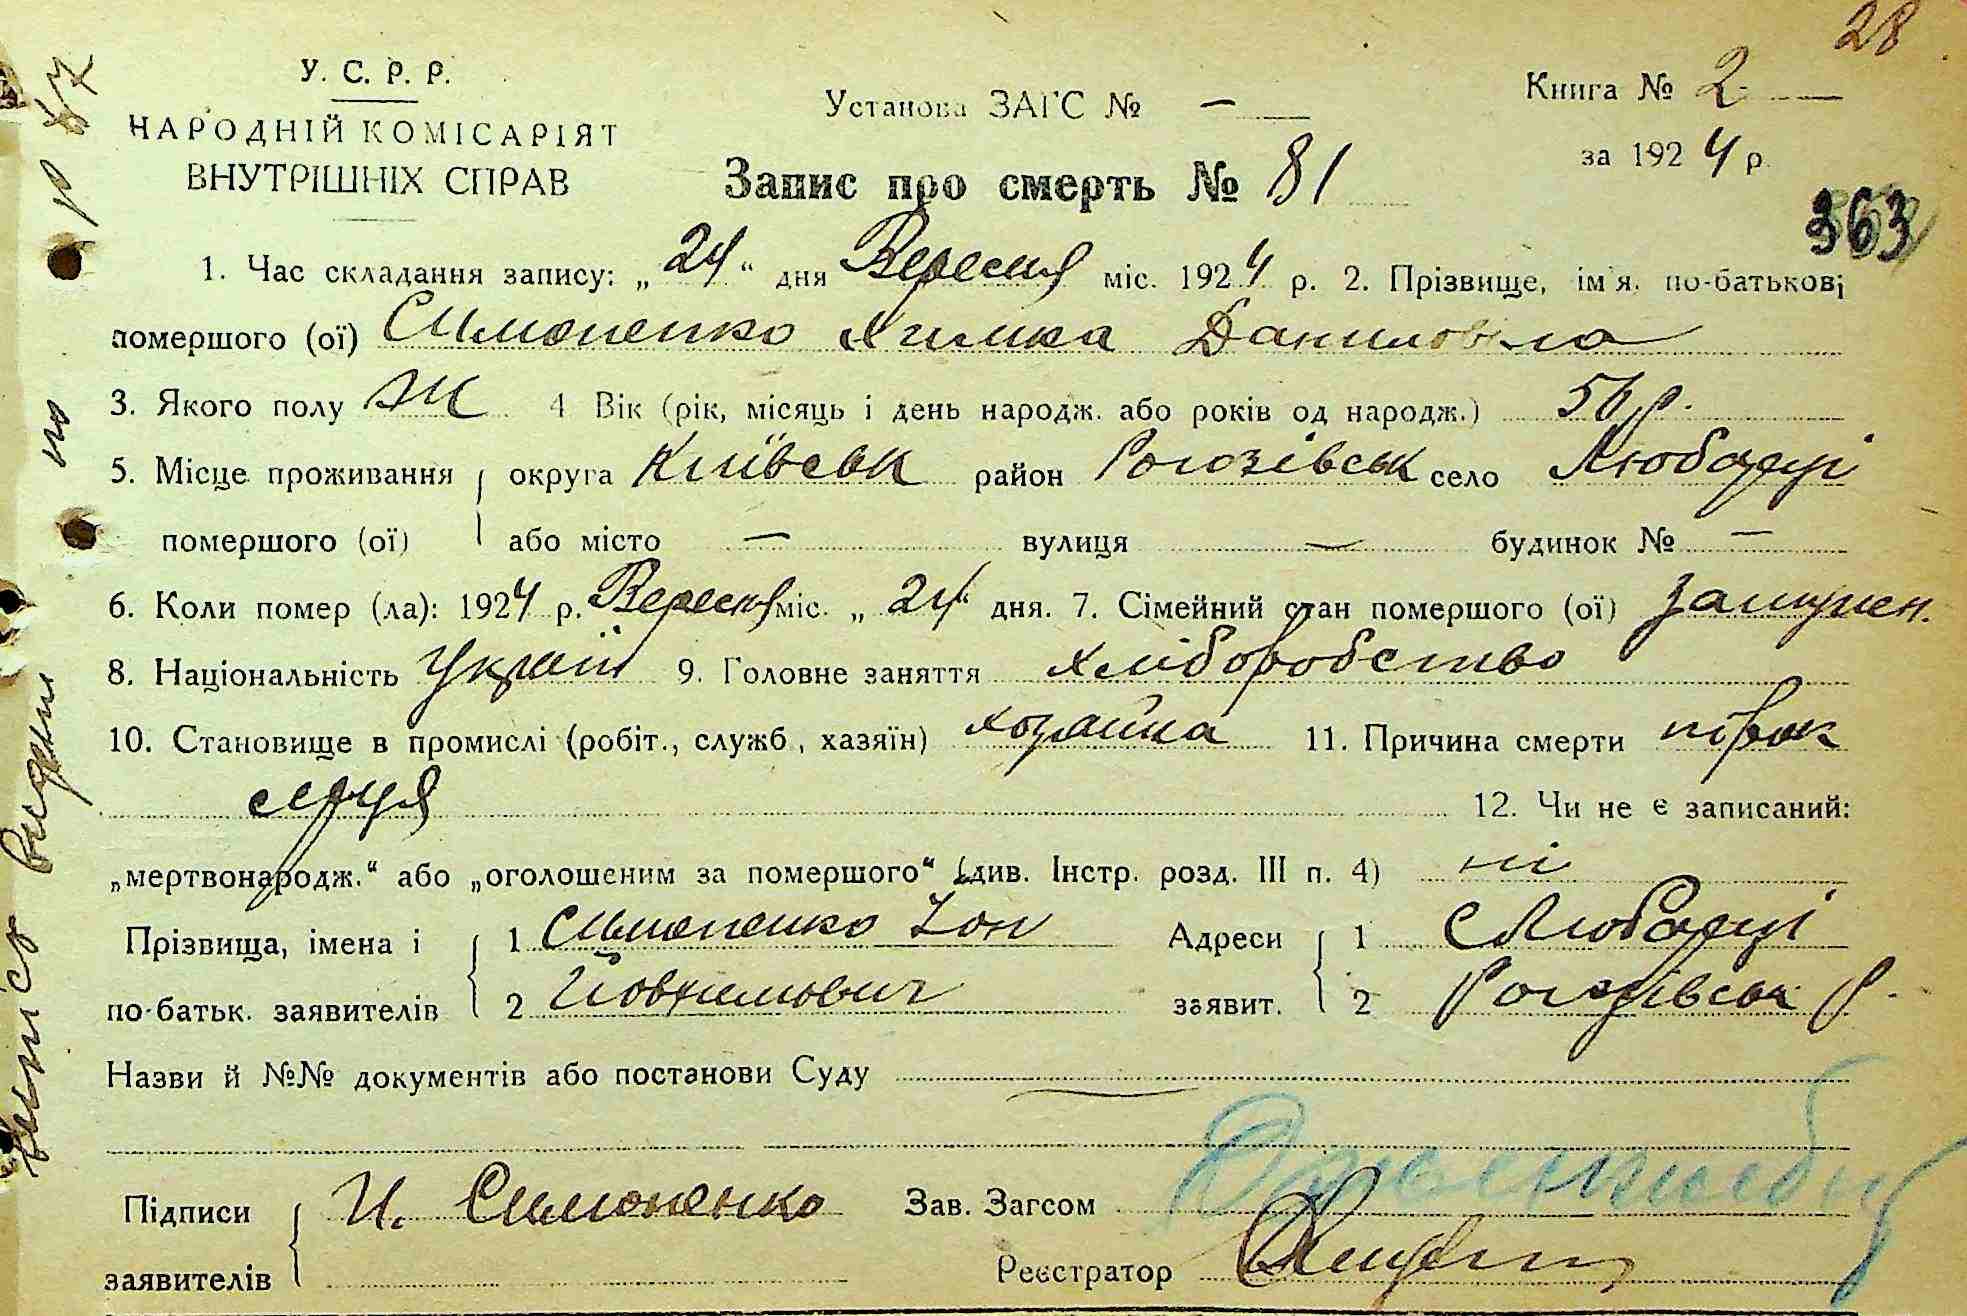 28
У. С. Р. Р.
НАРОДНІЙ КОМІСАРІЯТ
ВНУТРІШНІХ СПРАВ
Установа ЗАГС № —
Книга № 2
за 1924 р.
Запис про смерть № 81
363
1. Час складання запису: „24“ дня Вересня міс. 1924 р. 2. Прізвище, ім'я, по-батькові
помершого (ої) Симоненко Химка Даниловна
3. Якого полу Ж 4 Вік (рік, місяць і день народж. або років од народж.) 56 р.
5. Місце проживання округа Київськ район Рогозівськ село Любарці
помершого (ої) або місто — вулиця — будинок № —
6. Коли помер (ла): 1924 р. Вересня міс. „24“ дня. 7. Сімейний стан помершого (ої) замужен.
8. Національність Україн 9. Головне заняття хліборобство
10. Становище в промислі (робіт., служб., хазяїн) хозяйка 11. Причина смерти порок
серця 12. Чи не є записаний:
„мертвонародж.“ або „оголошеним за помершого“ (див. Інстр. розд. III п. 4) ні
Прізвища, імена і 1 Симоненко Іон Адреси 1 с Любарці
по-батьк. заявителів 2 Йовхимович заявит. 2 Рогозівськ р.
Назви й №№ документів або постанови Суду —
Підписи И. Симоненко Зав. Загсом
заявителів Реєстратор